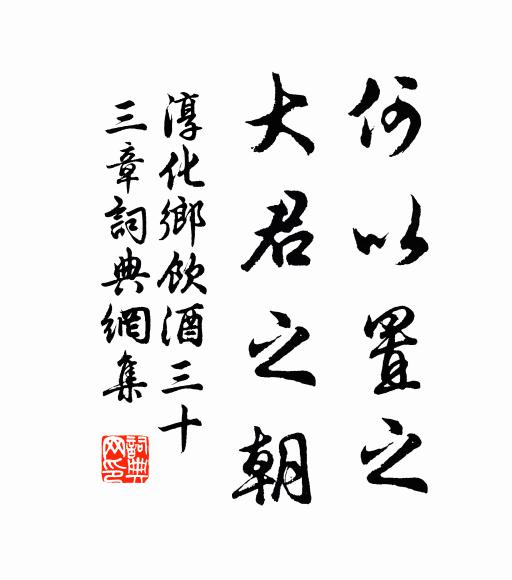 何以置之
大君之朝
淳化鄉飲酒三十
三章詞典網集
詞典
网印